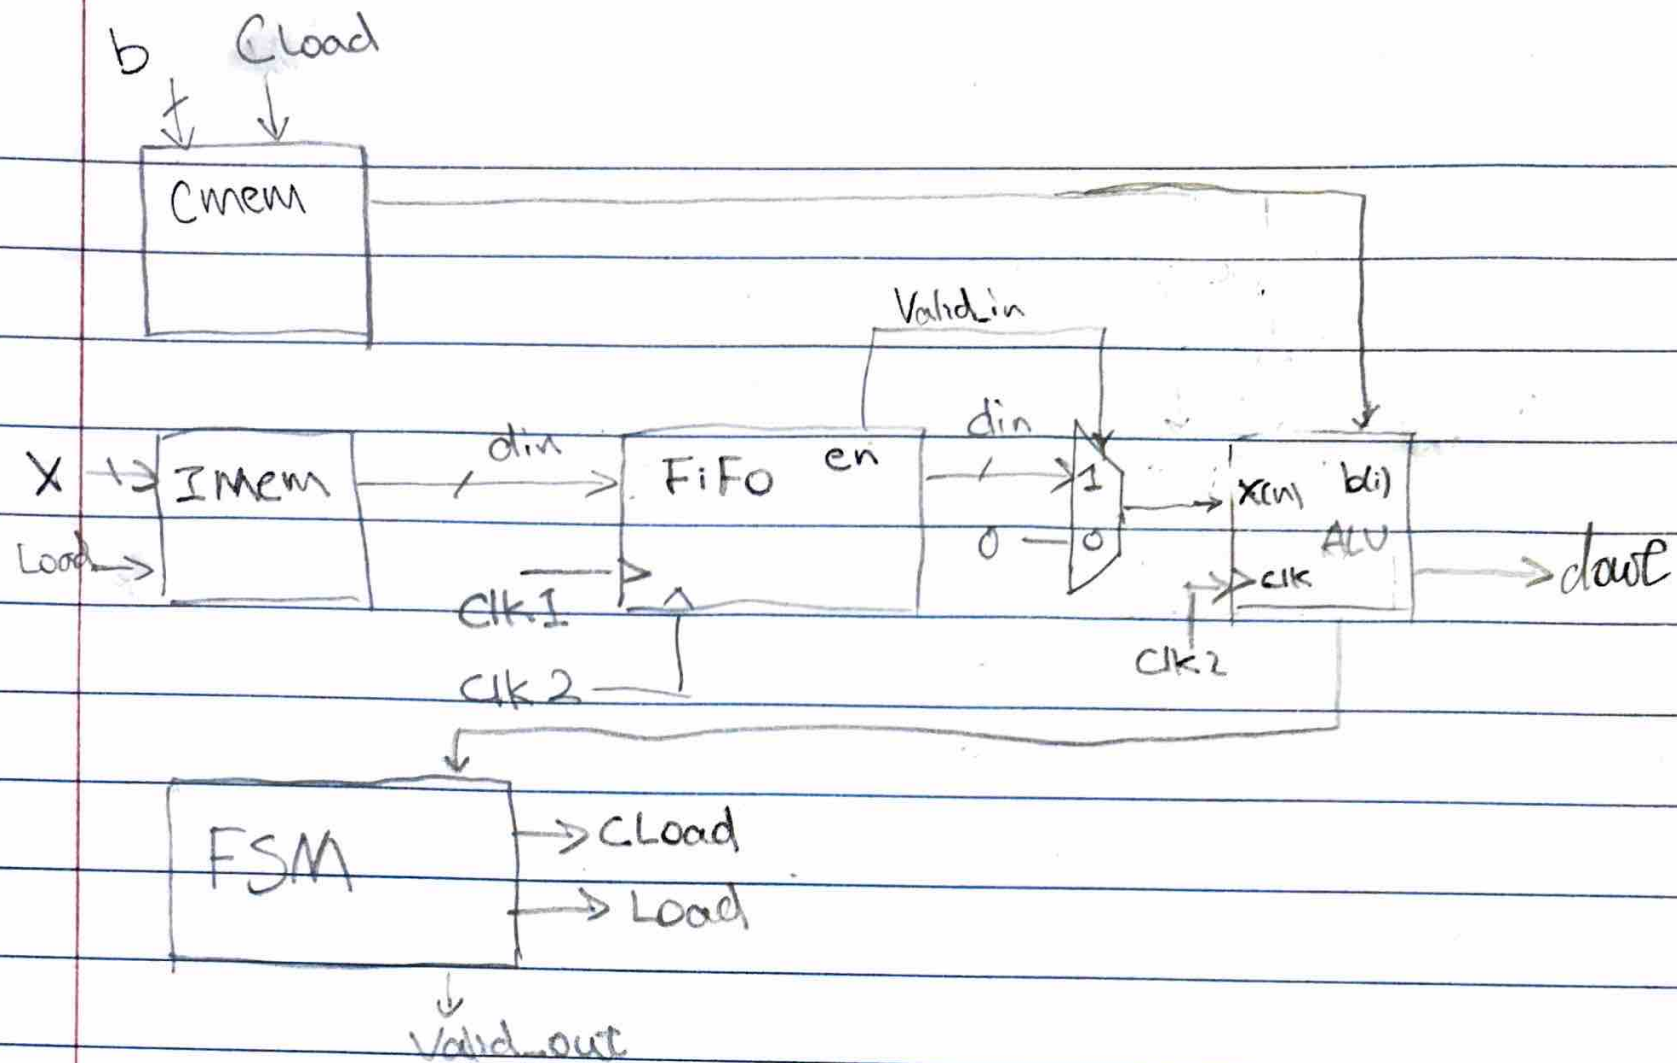 b CLoad
Cmem
Valid_in
X IMem din FiFo en din 1 x(n) b(i)
Load 0 0 ALU
clk dout
Clk1
Clk2
Clk2
FSM CLoad
Load
Valid_out